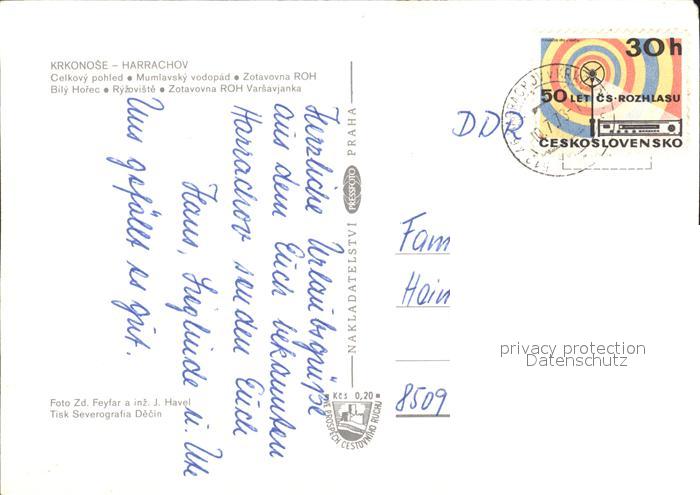 KRKONOŠE – HARRACHOV
Celkový pohled ● Mumlavský vodopád ● Zotavovna ROH
Bílý Hořec ● Rýžoviště ● Zotavovna ROH Varšavjanka
Herzliche Urlaubsgrüße
aus dem Euch bekannten
Harrachov senden Euch
Hans, Sieglinde u. Ute
Uns gefällt es gut.
Foto Zd. Feyfar a inž. J. Havel
Tisk Severografia Děčín
NAKLADATELSTVÍ PRESSFOTO PRAHA
Kčs 0,20
VE PROSPĚCH CESTOVNÍHO RUCHU
30h
50 LET ČS·ROZHLASU
ČESKOSLOVENSKO
HARRACHOV V KRK
DDR
Fam
Hein
8509
privacy protection
Datenschutz